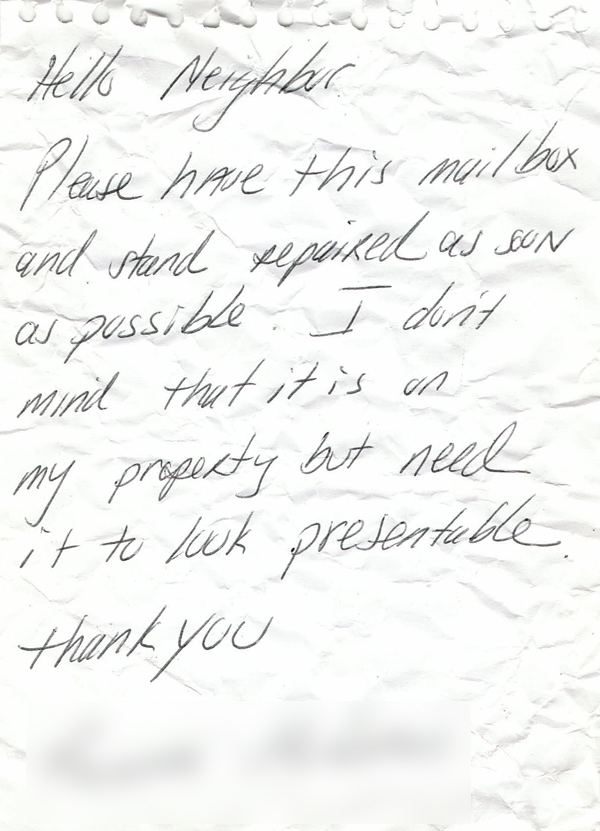 Hello Neighbor
Please have this mailbox
and stand repaired as soon
as possible. I don't
mind that it is on
my property but need
it to look presentable.
thank you